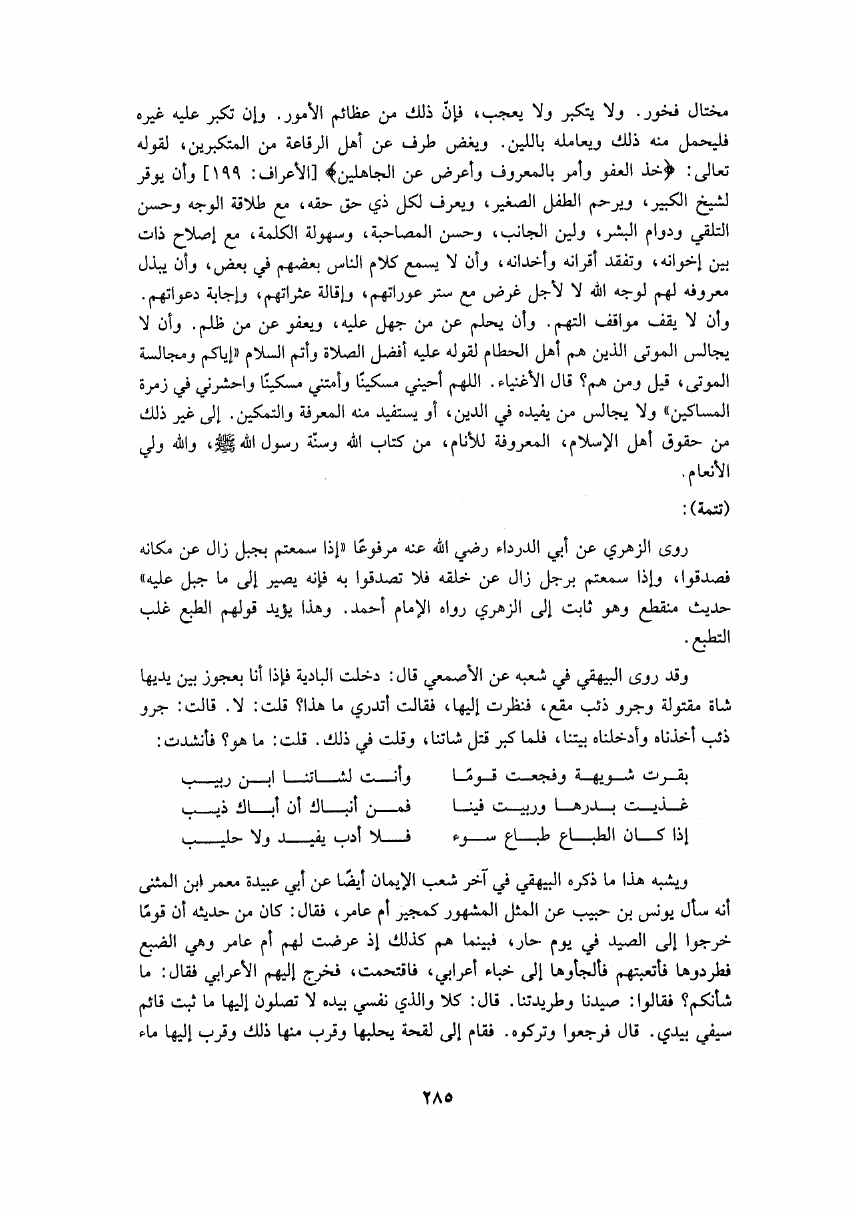 مختال فخور. ولا يتكبر ولا يعجب، فإنّ ذلك من عظائم الأمور. وإن تكبر عليه غيره
فليحمل منه ذلك ويعامله باللين. ويغض طرف عن أهل الرقاعة من المتكبرين، لقوله
تعالى: ﴿خذ العفو وأمر بالمعروف وأعرض عن الجاهلين﴾ [الأعراف: ١٩٩] وأن يوقر
لشيخ الكبير، ويرحم الطفل الصغير، ويعرف لكل ذي حق حقه، مع طلاقة الوجه وحسن
التلقي ودوام البشر، ولين الجانب، وحسن المصاحبة، وسهولة الكلمة، مع إصلاح ذات
بين إخوانه، وتفقد أقرانه وأخدانه، وأن لا يسمع كلام الناس بعضهم في بعض، وأن يبذل
معروفه لهم لوجه الله لا لأجل غرض مع ستر عوراتهم، وإقالة عثراتهم، وإجابة دعواتهم.
وأن لا يقف مواقف التهم. وأن يحلم عن من جهل عليه، ويعفو عن من ظلم. وأن لا
يجالس الموتى الذين هم أهل الحطام لقوله عليه أفضل الصلاة وأتم السلام «إياكم ومجالسة
الموتى، قيل ومن هم؟ قال الأغنياء. اللهم أحيني مسكينًا وأمتني مسكينًا واحشرني في زمرة
المساكين» ولا يجالس من يفيده في الدين، أو يستفيد منه المعرفة والتمكين. إلى غير ذلك
من حقوق أهل الإسلام، المعروفة للأنام، من كتاب الله وسنّة رسول الله ﷺ، والله ولي
الأنعام.
(تتمة):
روى الزهري عن أبي الدرداء رضي الله عنه مرفوعًا «إذا سمعتم بجبل زال عن مكانه
فصدقوا، وإذا سمعتم برجل زال عن خلقه فلا تصدقوا به فإنه يصير إلى ما جبل عليه»
حديث منقطع وهو ثابت إلى الزهري رواه الإمام أحمد. وهذا يؤيد قولهم الطبع غلب
التطبع.
وقد روى البيهقي في شعبه عن الأصمعي قال: دخلت البادية فإذا أنا بعجوز بين يديها
شاة مقتولة وجرو ذئب مقع، فنظرت إليها، فقالت أتدري ما هذا؟ قلت: لا. قالت: جرو
ذئب أخذناه وأدخلناه بيتنا، فلما كبر قتل شاتنا، وقلت في ذلك. قلت: ما هو؟ فأنشدت:
بقرت شويهة وفجعت قومًا وأنت لشاتنا ابن ربيب
غذيت بدرها وربيت فينا فمن أنباك أن أباك ذيب
إذا كان الطباع طباع سوء فلا أدب يفيد ولا حليب
ويشبه هذا ما ذكره البيهقي في آخر شعب الإيمان أيضًا عن أبي عبيدة معمر ابن المثنى
أنه سأل يونس بن حبيب عن المثل المشهور كمجير أم عامر، فقال: كان من حديثه أن قومًا
خرجوا إلى الصيد في يوم حار، فبينما هم كذلك إذ عرضت لهم أم عامر وهي الضبع
فطردوها فأتعبتهم فألجأوها إلى خباء أعرابي، فاقتحمت، فخرج إليهم الأعرابي فقال: ما
شأنكم؟ فقالوا: صيدنا وطريدتنا. قال: كلا والذي نفسي بيده لا تصلون إليها ما ثبت قائم
سيفي بيدي. قال فرجعوا وتركوه. فقام إلى لقحة يحلبها وقرب منها ذلك وقرب إليها ماء
٢٨٥